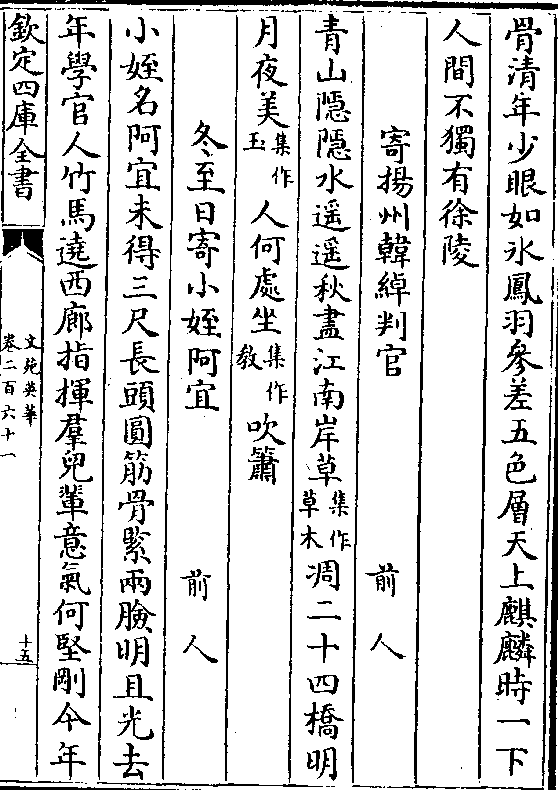 骨清年少眼如氷鳳羽參差五色層天上麒麟時一下
人間不獨有徐陵
寄揚州韓綽判官　前人
青山隱隱水遥遥秋盡江南岸草集作草木凋二十四橋明
月夜美集作玉人何處坐集作教吹簫
冬至日寄小姪阿宜　前人
小姪名阿宜未得三尺長頭圓筋骨緊兩臉明且光去
年學官人竹馬遶西廊指揮羣兒輩意氣何堅剛今年
欽定四庫全書
文苑英華
卷二百六十一
十五